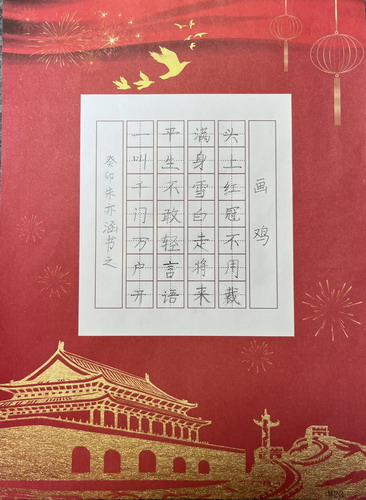 画鸡
头上红冠不用裁
满身雪白走将来
平生不敢轻言语
一叫千门万户开
癸卯朱亦涵书之